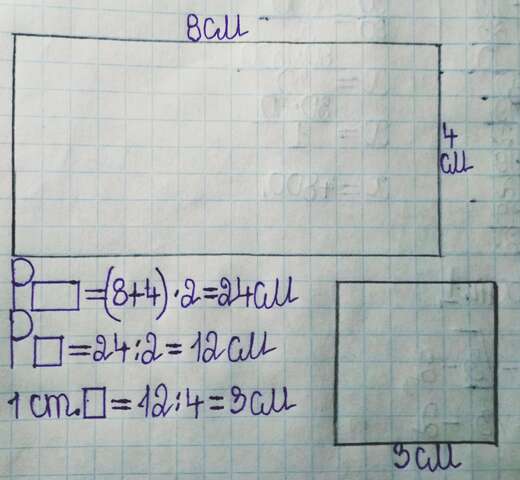 8см
4
см
P▭=(8+4)·2=24см
P□=24:2=12см
1 ст.□=12:4=3см
3см